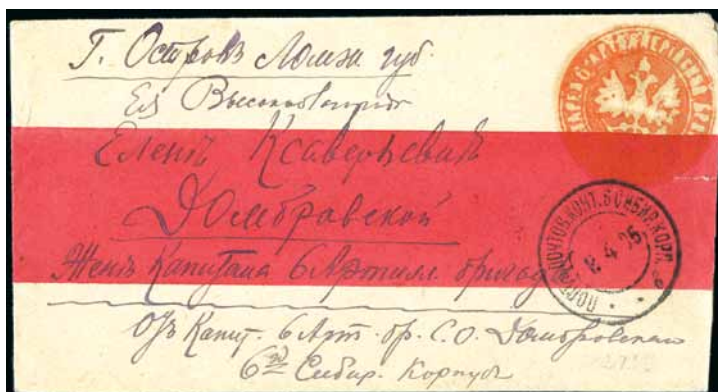 Г. Островъ Ломж. губ.
Ея Высокоблагород
Еленѣ Ксаверьевнѣ
Домбровской
Женѣ Капитана 6 Артилл. бригады
Отъ Капит. 6 Арт. бр. С. О. Домбровскаго
6го Сибир. Корпуса
ПОЧТОВ. КОНТ. 6 СИБИР. КОРП.
4